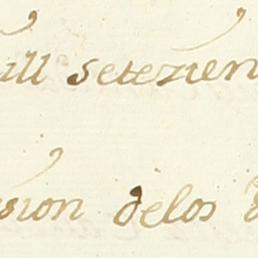 ull setezien
sion delos